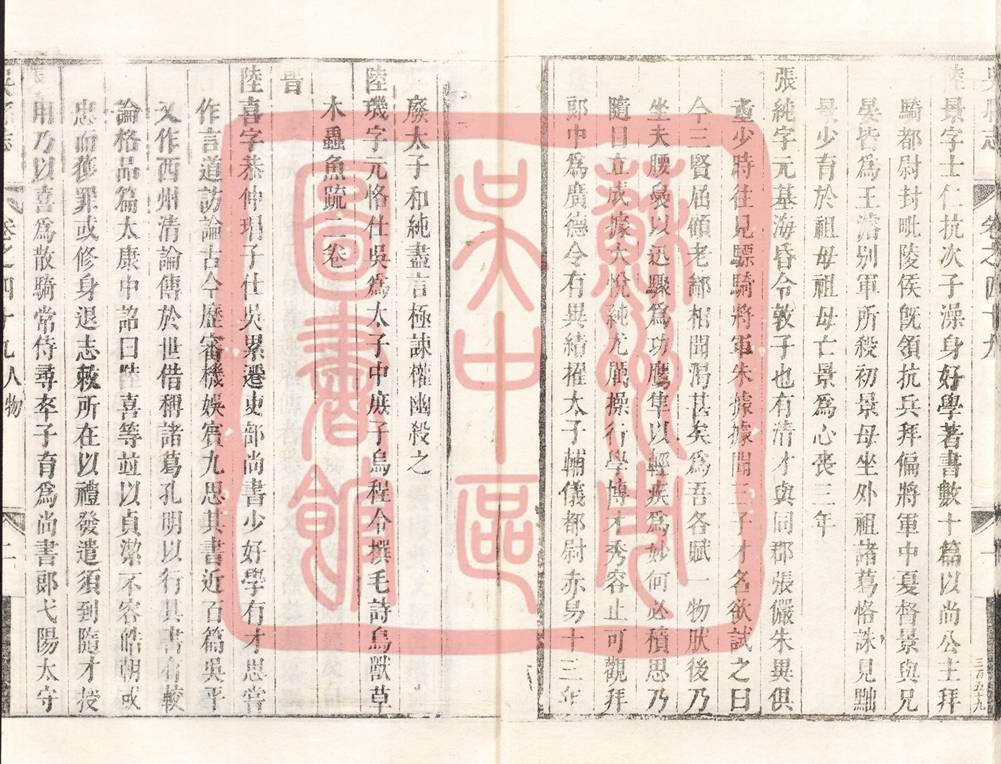 吳縣志
卷之四十九
十
三百五十九
陸景字士仁抗次子澡身好學著書數十篇以尚公主拜
騎都尉封毗陵侯旣領抗兵拜偏將軍中夏督景與兄
晏皆爲王濬別軍所殺初景母坐外祖諸葛恪誅見黜
景少育於祖母祖母亡景爲心喪三年
張純字元基海昏令敦子也有淸才與同郡張儼朱異俱
童少時往見驃騎將軍朱據據聞三子才名欲試之曰
今三賢屈顧老鄙相聞渴甚矣爲吾各賦一物肰後乃
坐夫腰褭以迅驟爲功鷹隼以輕疾爲妙何必積思乃
隨目立成據大悅純尤厲操行學博才秀容止可觀拜
郞中爲廣德令有異績擢太子輔儀都尉赤烏十三年
廢太子和純盡言極諫權幽殺之
陸璣字元恪仕吳爲太子中庶子烏程令撰毛詩鳥獸草
木蟲魚疏二卷
晋
陸喜字恭仲瑁子仕吳累遷吏部尚書少好學有才思嘗
作言道訪論古今歷審機娛賓九思其書近百篇吳平
又作西州淸論傳於世借稱諸葛孔明以行其書有較
論格品篇太康中詔曰陸喜等竝以貞潔不容皓朝或
忠而獲罪或修身退志敕所在以禮發遣須到隨才授
用乃以喜爲散騎常侍尋卒子育爲尚書郞弋陽太守
吳縣志
卷之四十九人物
二
蘇州市
吳中區
圖書館